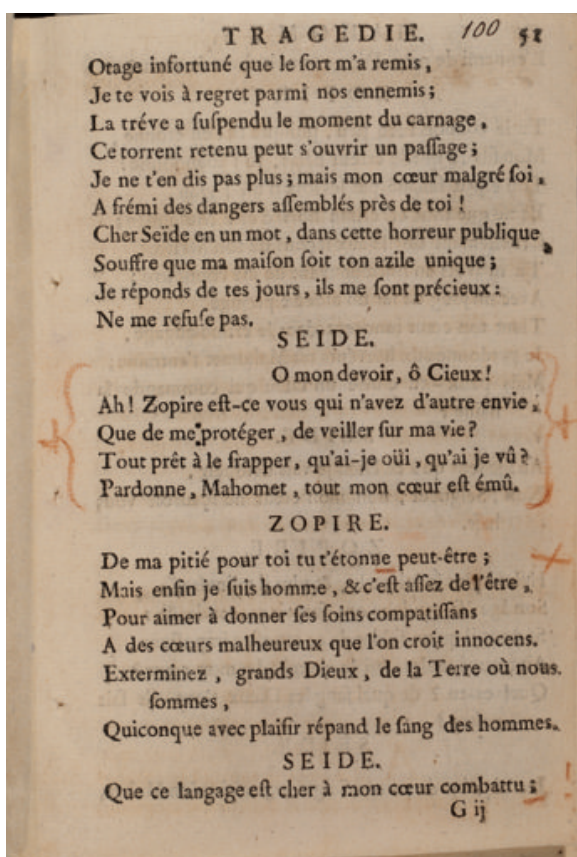 TRAGEDIE. 100 51
Otage infortuné que le ſort m'a remis,
Je te vois à regret parmi nos ennemis;
La tréve a ſuſpendu le moment du carnage,
Ce torrent retenu peut s'ouvrir un paſſage;
Je ne t'en dis pas plus; mais mon cœur malgré ſoi,
A frémi des dangers aſſemblés près de toi!
Cher Seïde en un mot, dans cette horreur publique,
Souffre que ma maiſon ſoit ton azile unique;
Je réponds de tes jours, ils me ſont précieux:
Ne me refuſe pas.
SEIDE.
O mon devoir, ô Cieux!
Ah! Zopire eſt-ce vous qui n'avez d'autre envie,
Que de me protéger, de veiller ſur ma vie?
Tout prêt à le frapper, qu'ai-je oüi, qu'ai je vû?
Pardonne, Mahomet, tout mon cœur eſt émû.
ZOPIRE.
De ma pitié pour toi tu t'étonne peut-être;
Mais enfin je ſuis homme, & c'eſt aſſez de l'être,
Pour aimer à donner ſes ſoins compatiſſans
A des cœurs malheureux que l'on croit innocens.
Exterminez, grands Dieux, de la Terre où nous.
ſommes,
Quiconque avec plaiſir répand le ſang des hommes.
SEIDE.
Que ce langage eſt cher à mon cœur combattu;
G ij